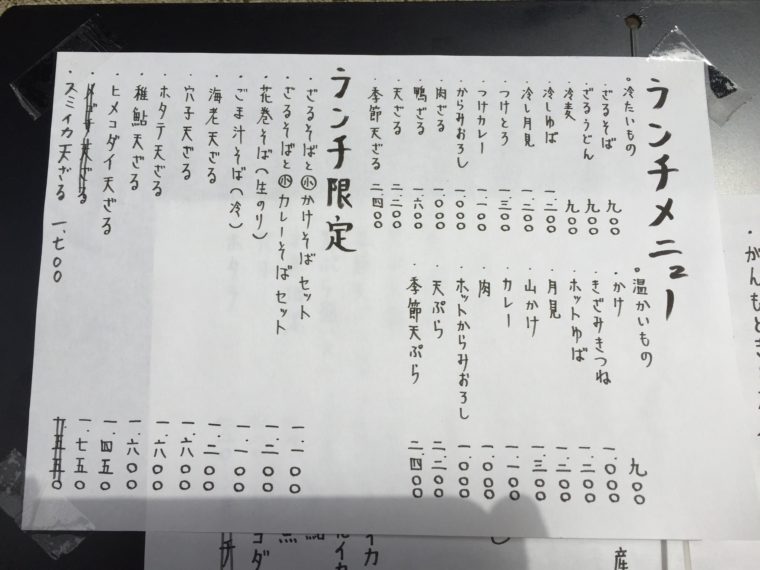 ランチメニュー
。冷たいもの
・ざるそば 九〇〇
・ざるうどん 九〇〇
・冷麦 九〇〇
・冷しゆば 一.二〇〇
・冷し月見 一.二〇〇
・つけとろ 一.三〇〇
・つけカレー 一.一〇〇
・からみおろし 一.〇〇〇
・肉ざる 一.〇〇〇
・鴨ざる 一.六〇〇
・天ざる 二.二〇〇
・季節天ざる 二.四〇〇
。温かいもの
・かけ 九〇〇
・きざみきつね 一.〇〇〇
・ホットゆば 一.二〇〇
・月見 一.二〇〇
・山かけ 一.三〇〇
・カレー 一.一〇〇
・肉 一.〇〇〇
・ホットからみおろし 一.〇〇〇
・天ぷら 二.二〇〇
・季節天ぷら 二.四〇〇
ランチ限定
・ざるそばと㊙小かけそばセット 一.一〇〇
・ざるそばと小カレーそばセット 一.二〇〇
・花巻そば(生のり) 一.一〇〇
・ごま汁そば(冷) 一.二〇〇
・海老天ざる 一.六〇〇
・穴子天ざる 一.六〇〇
・ホタテ天ざる 一.六〇〇
・稚鮎天ざる 一.四五〇
・ヒメコダイ天ざる 一.七五〇
・メゴチ天ざる 一.五五〇
・スミイカ天ざる 一.七〇〇
・がんもどき